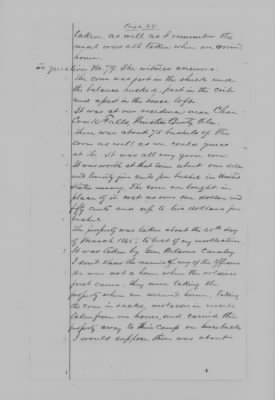 Page 28.
taken as well as I remember the
meat was all taken when we arrived
home.
To question No. 79. The witness answers.
The corn was part in the shuck under
the balance husked, part in the crib
and a part in the house loft.
It was at our residence near Clear
Creek Falls, Winston County Ala.
There was about 75 bushels of the
corn as well as we could guess
at it. It was all my own corn
It was worth at that time about one dollar
and twenty five cents per bushel in United
States money. The corn we bought in
place of it cost us over one dollar and
fifty cents and up to two dollars per
bushel
The property was taken about the 25th day
of March 1865, to best of my recollection.
It was taken by Gen. Wilsons Cavalry
I don't know the names of any of the officers
We was not at home when the soldiers
first came. they were taking the
property when we arrived home, taking
the corn in sacks, meat
taken from our house, and carried the
property away to their camp on horseback
I would suppose there was about